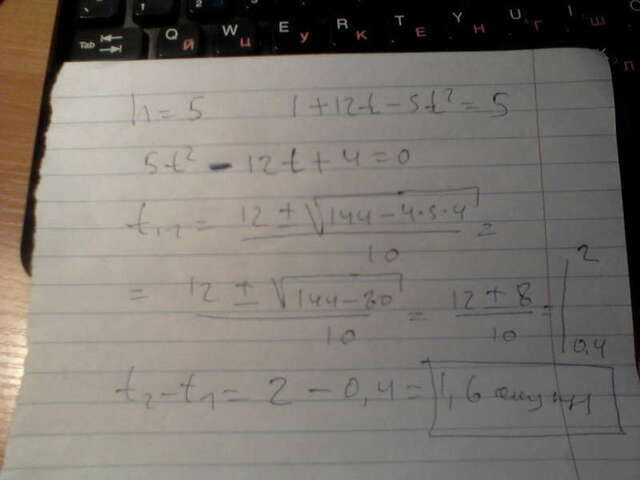 Tab Q Й W Ц E У R К T Е Y Н U Г I Ш
Л
h = 5 1 + 12t - 5t² = 5
5t² - 12t + 4 = 0
t₁,₂ = (12 ± √(144 - 4·5·4)) / 10 =
= (12 ± √(144 - 80)) / 10 = (12 ± 8) / 10 = | 2 0,4
t₂ - t₁ = 2 - 0,4 = 1,6